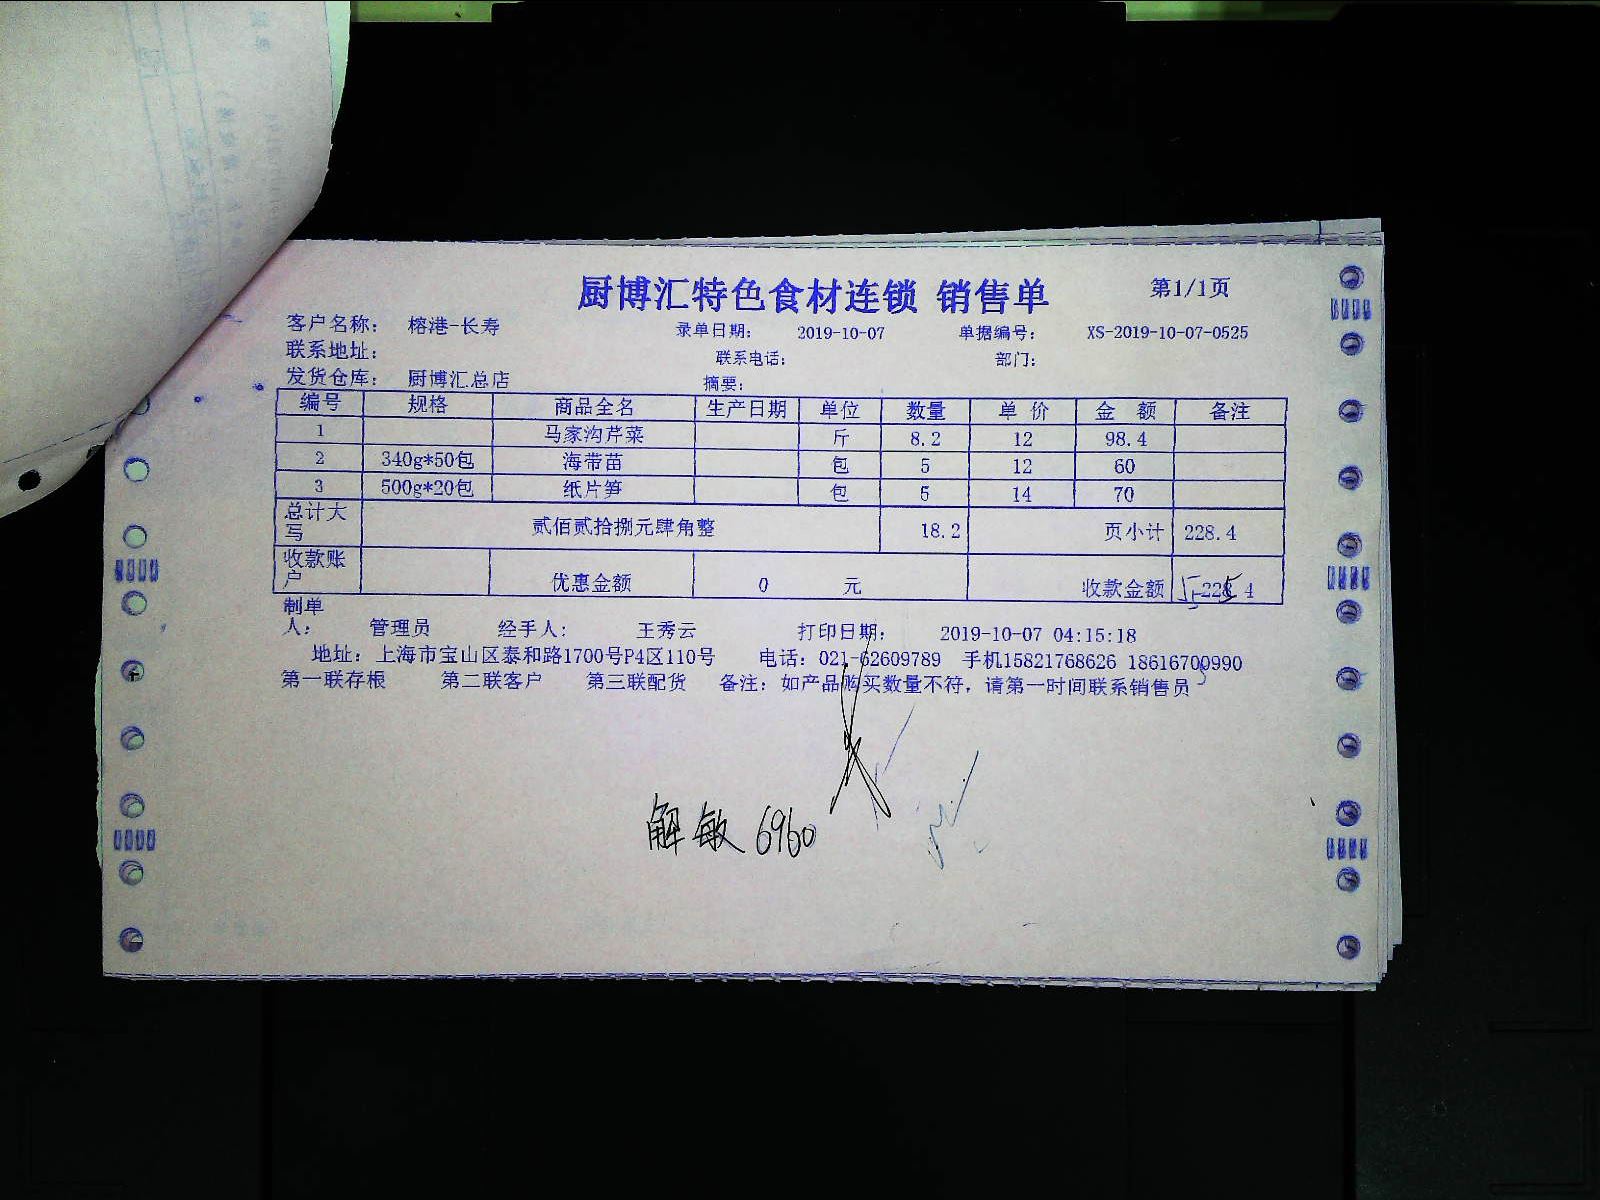 厨博汇特色食材连锁 销售单 第1/1页
客户名称： 榕港-长寿 录单日期： 2019-10-07 单据编号： XS-2019-10-07-0525
联系地址： 联系电话： 部门：
发货仓库： 厨博汇总店 摘要：
编号 规格 商品全名 生产日期 单位 数量 单 价 金 额 备注
1 马家沟芹菜 斤 8.2 12 98.4
2 340g*50包 海带苗 包 5 12 60
3 500g*20包 纸片笋 包 5 14 70
总计大写 贰佰贰拾捌元肆角整 18.2 页小计 228.4
收款账户 优惠金额 0 元 收款金额 228.4
制单人： 管理员 经手人： 王秀云 打印日期： 2019-10-07 04:15:18
地址：上海市宝山区泰和路1700号P4区110号 电话：021-62609789 手机15821768626 18616700990
第一联存根 第二联客户 第三联配货 备注：如产品购买数量不符，请第一时间联系销售员
解敏 6960